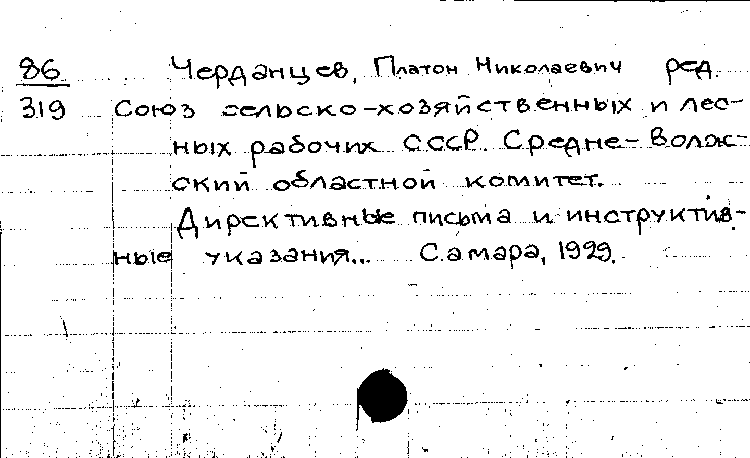 86 Черданцев, Платон Николаевич ред.
319 Союз сельско-хозяйственных и лес-
ных рабочих СССР. Средне-Волж-
ский областной комитет.
Директивные письма и инструктив-
ные указания... Самара, 1929.